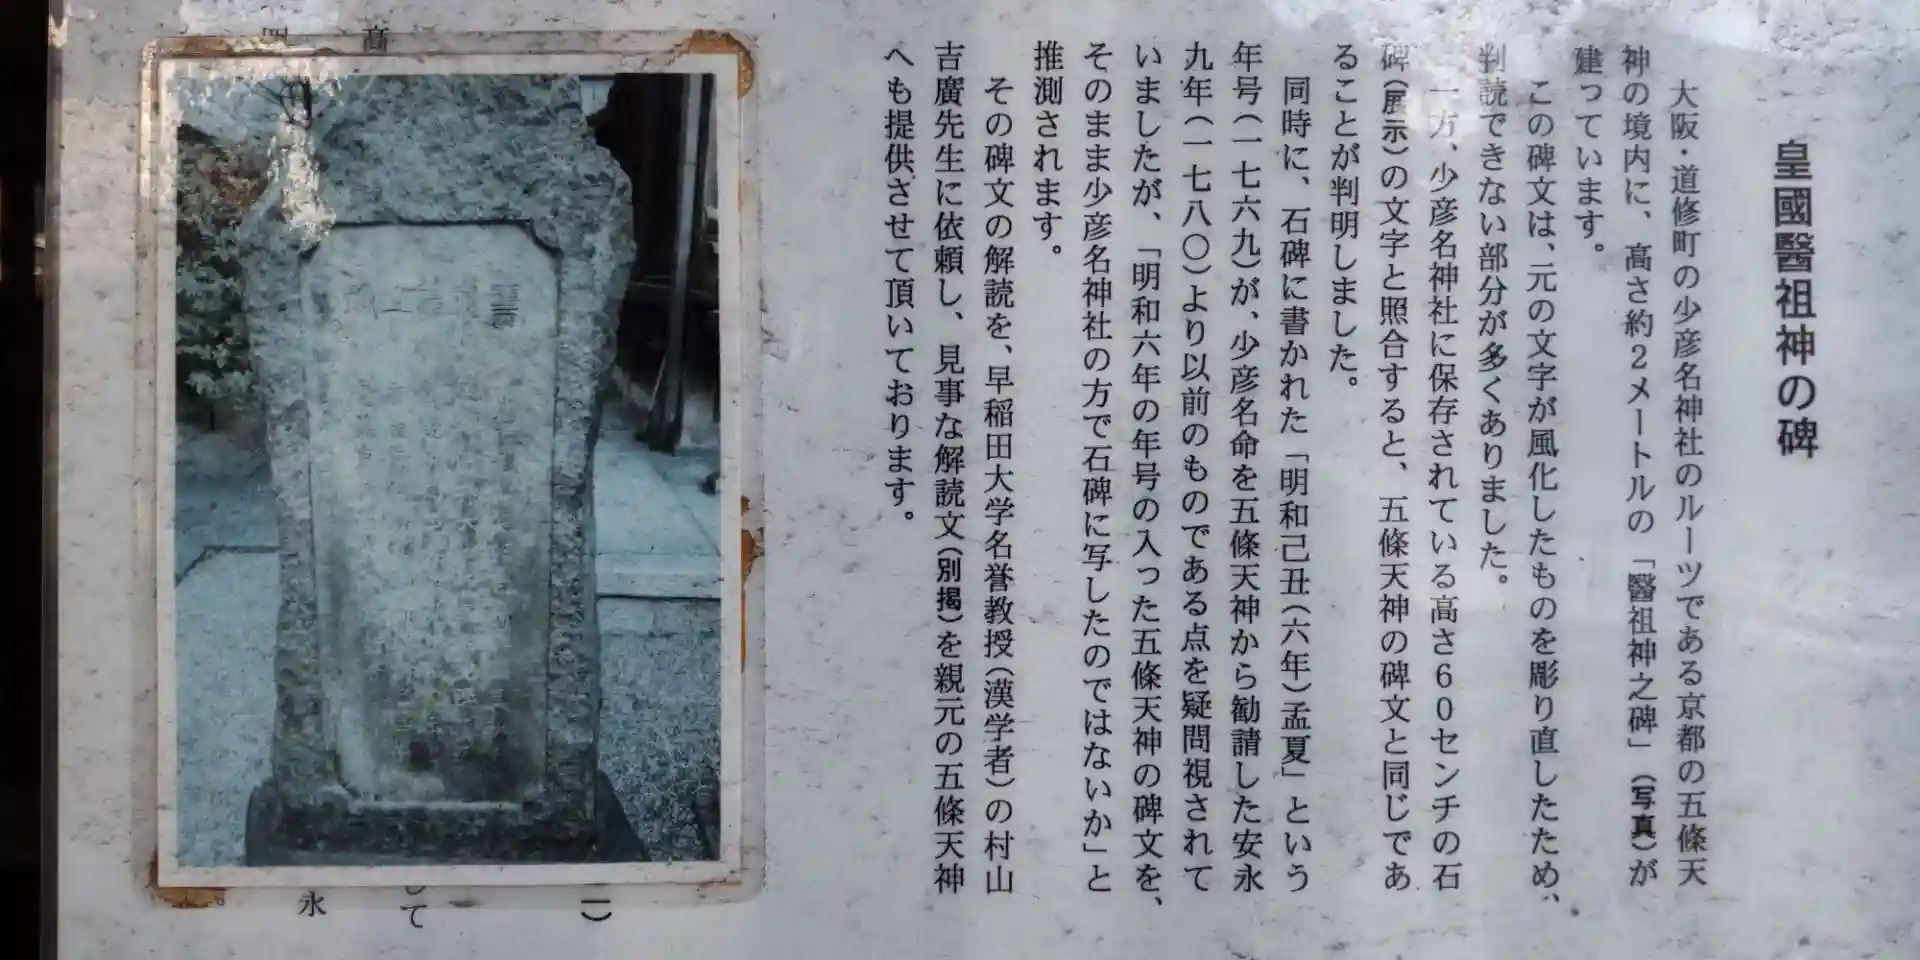 皇國醫祖神の碑
大阪・道修町の少彦名神社のルーツである京都の五條天
神の境内に、高さ約2メートルの「醫祖神之碑」(写真)が
建っています。
この碑文は、元の文字が風化したものを彫り直したため、
判読できない部分が多くありました。
一方、少彦名神社に保存されている高さ60センチの石
碑(展示)の文字と照合すると、五條天神の碑文と同じであ
ることが判明しました。
同時に、石碑に書かれた「明和己丑(六年)孟夏」という
年号(一七六九)が、少彦名命を五條天神から勧請した安永
九年(一七八〇)より以前のものである点を疑問視されて
いましたが、「明和六年の年号の入った五條天神の碑文を、
そのまま少彦名神社の方で石碑に写したのではないか」と
推測されます。
その碑文の解読を、早稲田大学名誉教授(漢学者)の村山
吉廣先生に依頼し、見事な解読文(別掲)を親元の五條天神
へも提供させて頂いております。
高
して
永